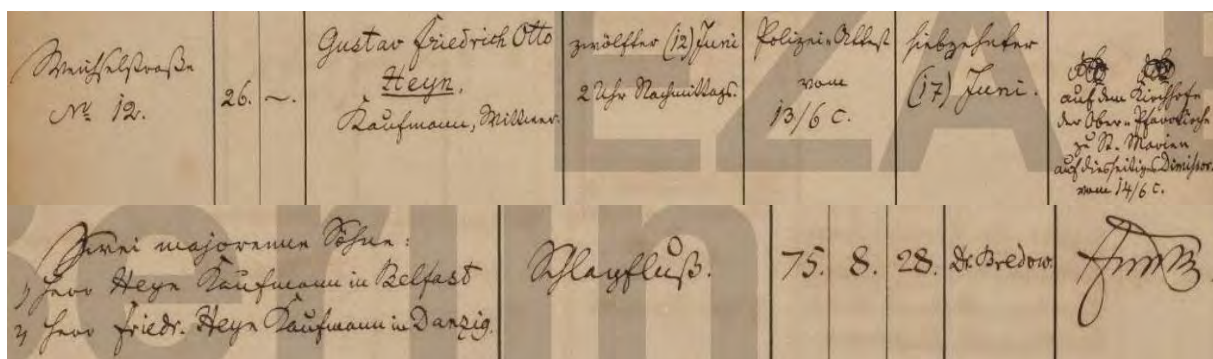 Weichselstraße
No. 12.
26.
~.
Gustav Friedrich Otto
Heyn.
Kaufmann, Wittwer.
zwölfter (12) Juni
2 Uhr Nachmittags.
Polizei-Attest
vom
13/6 c.
siebzehnter
(17) Juni.
auf dem Kirchhofe
der Ober-Pfarrkirche
zu St. Marien
auf diesseitiges Dimissor.
vom 14/6 c.
EZA
Zwei majorenne Söhne:
1) Herr Heyn Kaufmann in Belfast
2) Herr Friedr. Heyn Kaufmann in Danzig.
Schlagfluß.
75.
8.
28.
Dr. Bredow.
Berlin